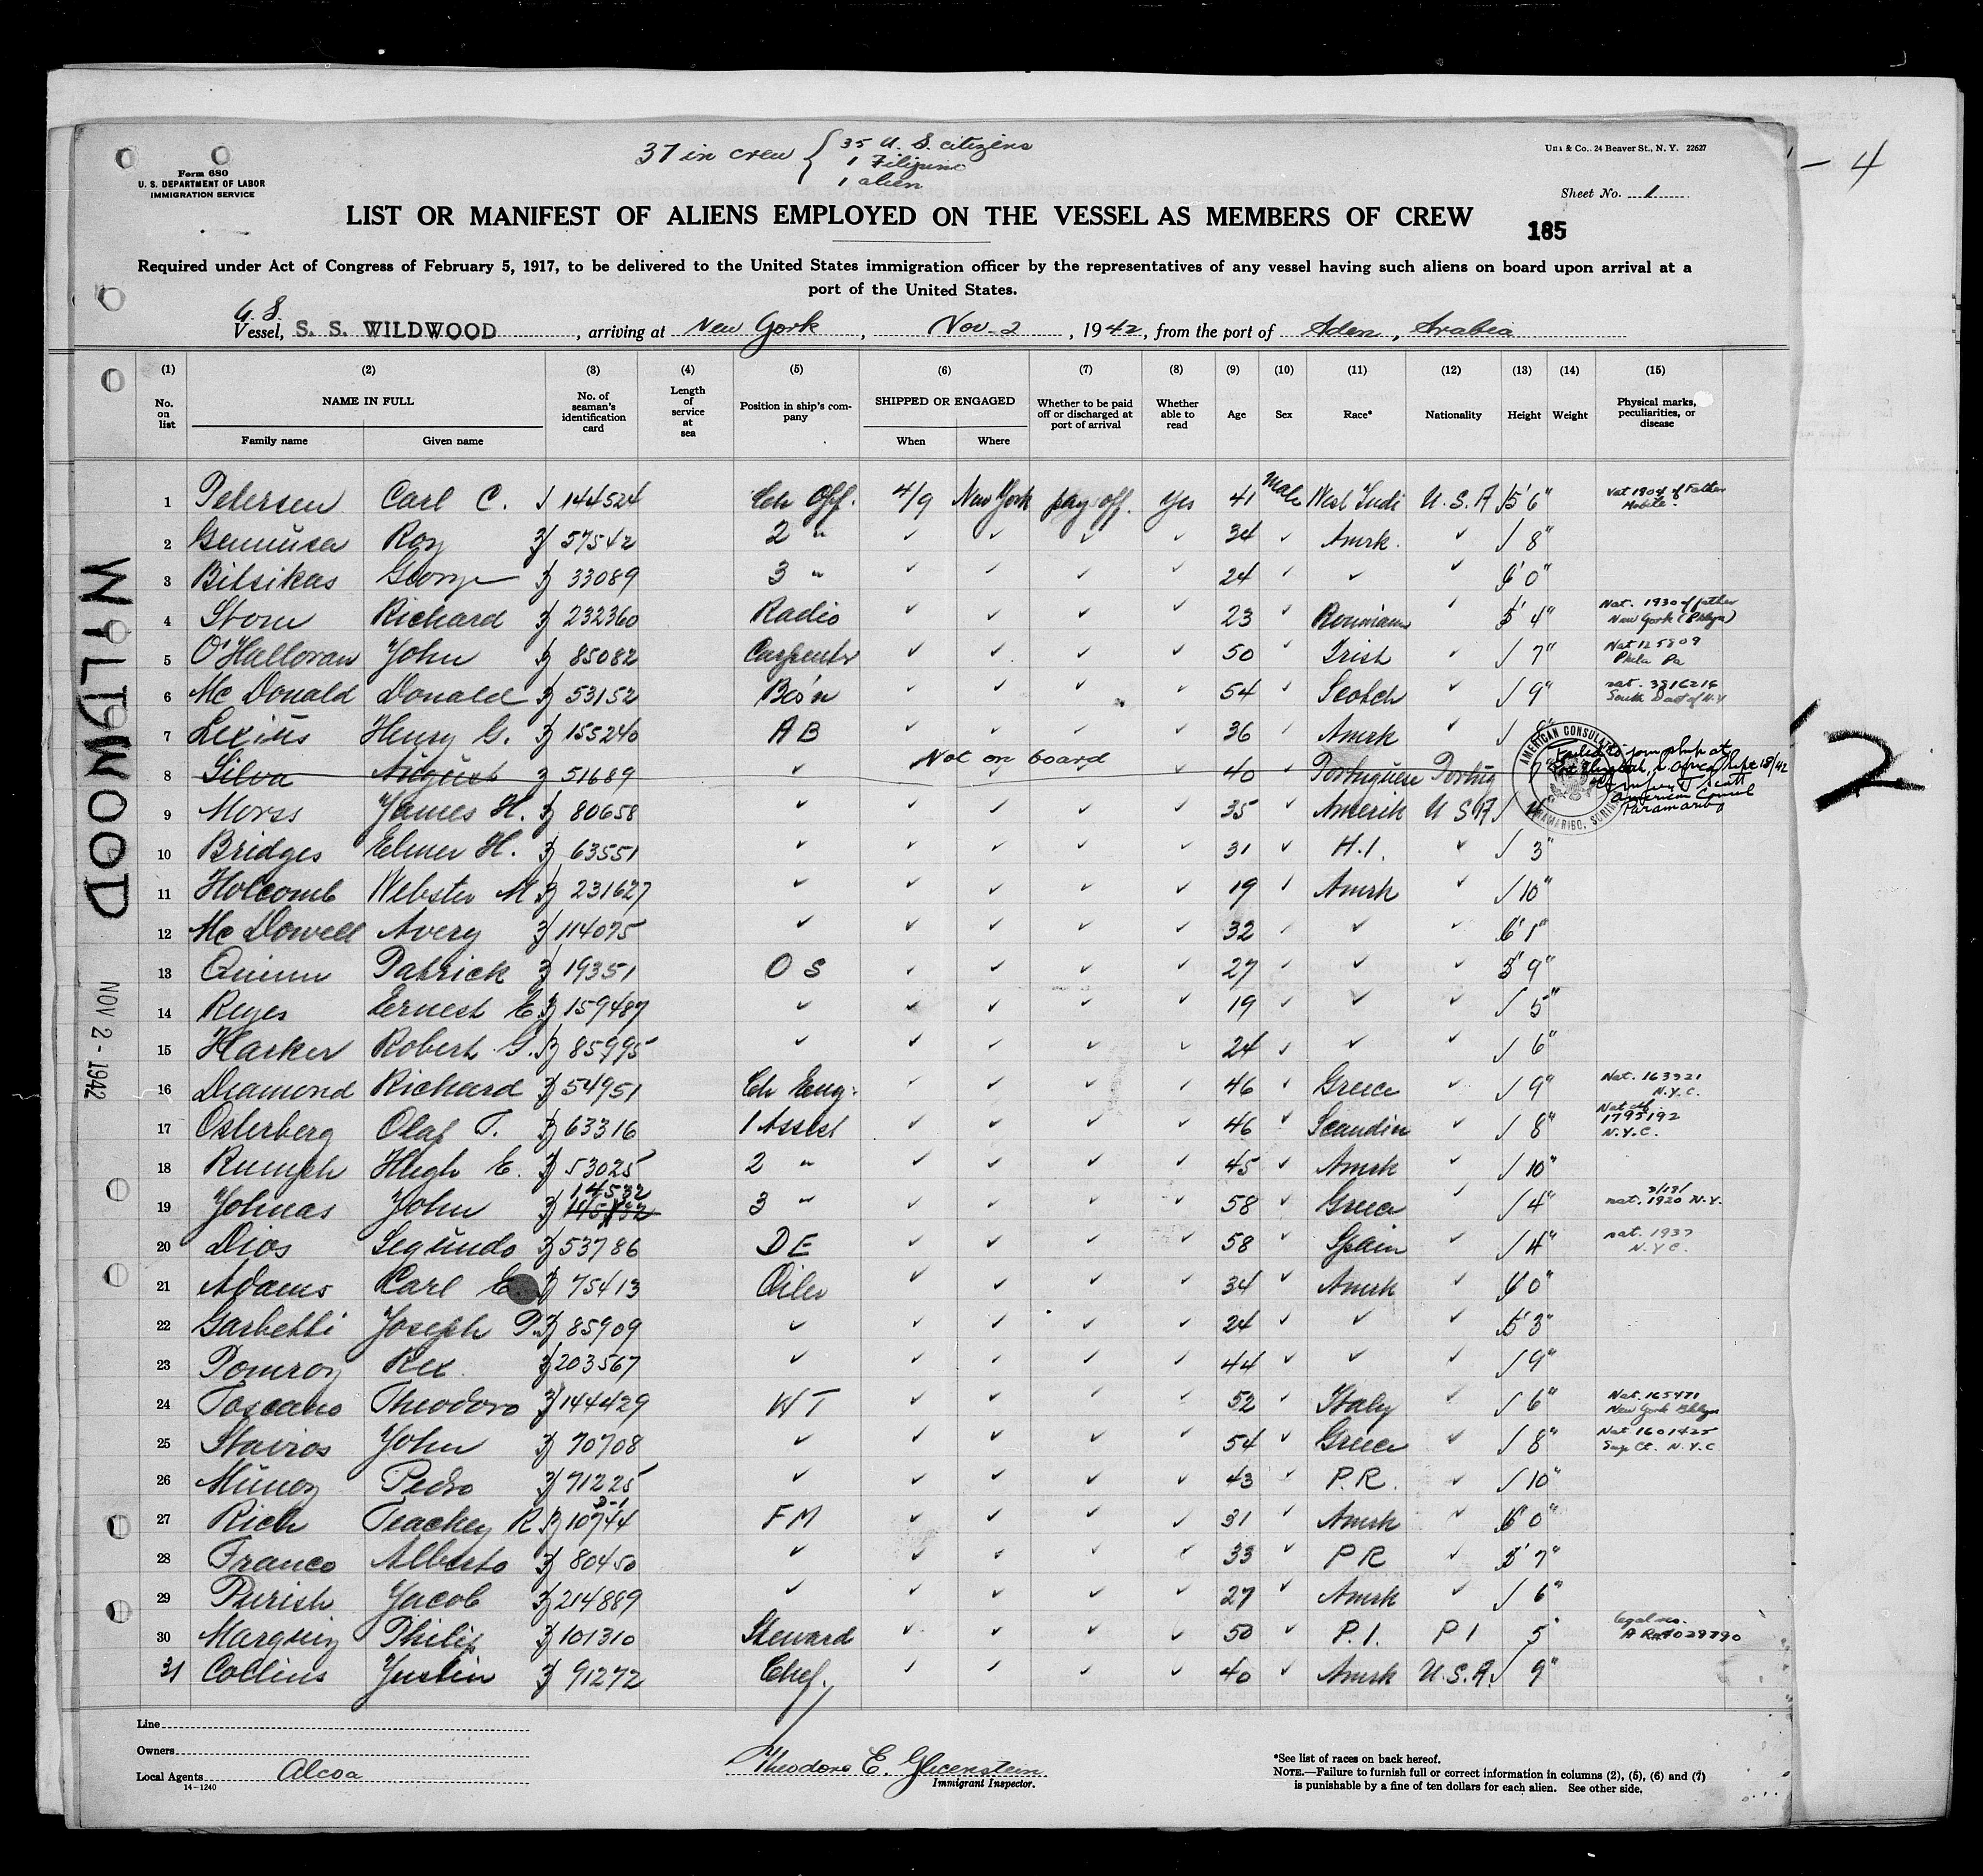 37 in crew { 35 U. S. citizens
1 Filipino
1 alien
Form 680
U. S. DEPARTMENT OF LABOR
IMMIGRATION SERVICE
24 Beaver St., N. Y. 22627
- 4
Sheet No. 1
LIST OR MANIFEST OF ALIENS EMPLOYED ON THE VESSEL AS MEMBERS OF CREW
185
Required under Act of Congress of February 5, 1917, to be delivered to the United States immigration officer by the representatives of any vessel having such aliens on board upon arrival at a
port of the United States.
Vessel, S. S. WILDWOOD, arriving at New York, Nov. 2, 1942, from the port of Aden, Arabia
(1) (2) (3) (4) (5) (6) (7) (8) (9) (10) (11) (12) (13) (14) (15)
No. on list
NAME IN FULL
Family name Given name
No. of seaman's identification card
Length of service at sea
Position in ship's company
SHIPPED OR ENGAGED
When Where
Whether to be paid off or discharged at port of arrival
Whether able to read
Age Sex Race* Nationality Height Weight
Physical marks, peculiarities, or disease
1 Petersen Carl C. 144524 Ch Off. 4/9 New York pay off. yes 41 Male West Indi U.S.A 5' 6" Nat 1904 of Father Mobile.
2 Roy Z 57542 2 " ✓ ✓ ✓ ✓ 34 ✓ Amrk. ✓ 8"
3 Bitsikas George Z 33089 3 " ✓ ✓ ✓ ✓ 24 ✓ ✓ ✓ 6' 0"
4 Storn Richard Z 232360 Radio ✓ ✓ ✓ ✓ 23 ✓ ✓ 5' 4" Nat. 1930 of father New York (Bklyn)
5 O'Halloran John Z 85082 Carpenter ✓ ✓ ✓ ✓ 50 ✓ Irish ✓ 7" Nat 125809 Phila Pa
6 Mc Donald Donald Z 53152 Bos'n ✓ ✓ ✓ ✓ 54 ✓ Scotch ✓ 9" nat. 3816216 South Dist of N.Y
7 Lexius Henry G. Z 155240 A B ✓ ✓ ✓ ✓ 36 ✓ Amrk ✓
8 Silva August Z 51689 ✓ Not on board 40 Portuguese Portug Failed to join ship at Port Elizabeth, S. Africa Sept 18/42
American Consul
Paramaribo
AMERICAN CONSULATE
PARAMARIBO, SURINAM
9 Morss James H. Z 80658 ✓ ✓ ✓ ✓ ✓ 35 ✓ Amerik U S A
10 Bridges Elmer H. Z 63551 ✓ ✓ ✓ ✓ ✓ 31 ✓ H.I. ✓ 3"
11 Holcomb Webster M. Z 231627 ✓ ✓ ✓ ✓ ✓ 19 ✓ Amrk ✓ 10"
12 Mc Dowell Avery Z 114075 ✓ ✓ ✓ ✓ ✓ 32 ✓ ✓ ✓ 6' 1"
13 Quinn Patrick Z 19351 O S ✓ ✓ ✓ ✓ 27 ✓ ✓ ✓ 5' 9"
14 Reyes Ernest E. Z 159487 ✓ ✓ ✓ ✓ ✓ 19 ✓ ✓ ✓ 5"
15 Harker Robert G. Z 85995 ✓ ✓ ✓ ✓ ✓ 24 ✓ ✓ ✓ 6"
16 Diamond Richard Z 54951 Ch Eng. ✓ ✓ ✓ ✓ 46 ✓ Greece ✓ 9" Nat. 163921 N.Y.C.
17 Osterberg Olaf T. Z 63316 1 Assist ✓ ✓ ✓ ✓ 46 ✓ Scandin ✓ 8" 1795192 N.Y.C.
18 Hugh E. Z 53025 2 " ✓ ✓ ✓ ✓ 45 ✓ Amrk ✓ 10"
19 Johnas John Z 14532 3 " ✓ ✓ ✓ ✓ 58 ✓ Greece ✓ 4" nat. 1920 N.Y.
20 Dios Segundo Z 53786 D E ✓ ✓ ✓ ✓ 58 ✓ Spain ✓ 4" nat. 1937 N.Y.C.
21 Adams Carl E Z 75413 Oiler ✓ ✓ ✓ ✓ 34 ✓ Amrk ✓ 6' 0"
22 Garbetti Joseph P. Z 85909 ✓ ✓ ✓ ✓ ✓ 24 ✓ ✓ ✓ 5' 3"
23 Pomroy Rex Z 203567 ✓ ✓ ✓ ✓ ✓ 44 ✓ ✓ ✓ 9"
24 Toscano Theodoro Z 144429 W T ✓ ✓ ✓ ✓ 52 ✓ Italy ✓ 6" Nat. 165471 New York Bklyn
25 Stavros John Z 70708 ✓ ✓ ✓ ✓ ✓ 54 ✓ Greece ✓ 8" Nat 1601425 Sup Ct. N.Y.C
26 Munoz Pedro Z 71225 ✓ ✓ ✓ ✓ ✓ 43 ✓ P.R. ✓ 10"
27 Rich Teachey R Z 10744 F M ✓ ✓ ✓ ✓ 31 ✓ Amrk ✓ 6' 0"
28 Franco Alberto Z 80450 ✓ ✓ ✓ ✓ ✓ 33 ✓ P R ✓ 5' 7"
29 Purish Jacob Z 214889 ✓ ✓ ✓ ✓ ✓ 27 ✓ Amrk ✓ 6"
30 Philip Z 101310 Steward ✓ ✓ ✓ ✓ 50 ✓ P.I. P I 5 legal res.
31 Collins Justin Z 91272 Chef. ✓ ✓ ✓ ✓ 40 ✓ Amrk U.S.A. 9"
WILDWOOD
NOV 2 - 1942
2
Line
Owners
Local Agents Alcoa
14-1240
Theodore E. Glicenstein
Immigrant Inspector.
*See list of races on back hereof.
NOTE.—Failure to furnish full or correct information in columns (2), (5), (6) and (7)
is punishable by a fine of ten dollars for each alien. See other side.